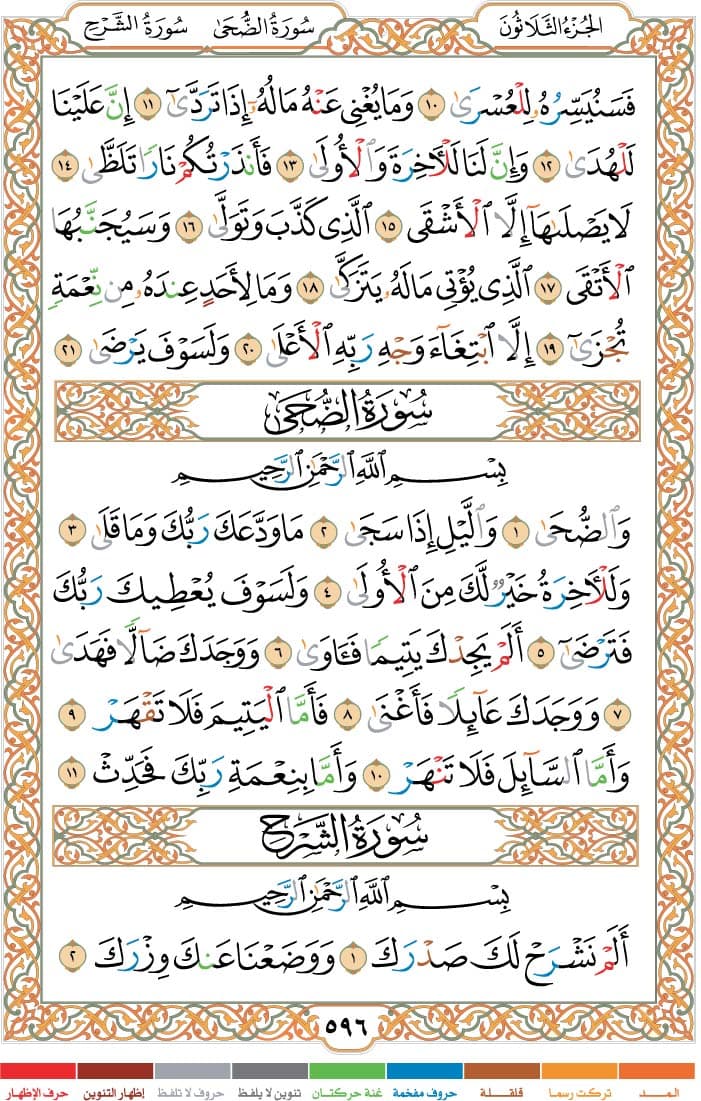 الجزء الثلاثون سورة الضحى سورة الشرح
فَسَنُيَسِّرُهُۥ لِلْعُسْرَىٰ ١٠ وَمَا يُغْنِى عَنْهُ مَالُهُۥٓ إِذَا تَرَدَّىٰٓ ١١ إِنَّ عَلَيْنَا
لَلْهُدَىٰ ١٢ وَإِنَّ لَنَا لَلْـَٔاخِرَةَ وَٱلْأُولَىٰ ١٣ فَأَنذَرْتُكُمْ نَارًا تَلَظَّىٰ ١٤
لَا يَصْلَىٰهَآ إِلَّا ٱلْأَشْقَى ١٥ ٱلَّذِى كَذَّبَ وَتَوَلَّىٰ ١٦ وَسَيُجَنَّبُهَا
ٱلْأَتْقَى ١٧ ٱلَّذِى يُؤْتِى مَالَهُۥ يَتَزَكَّىٰ ١٨ وَمَا لِأَحَدٍ عِندَهُۥ مِن نِّعْمَةٍ
تُجْزَىٰٓ ١٩ إِلَّا ٱبْتِغَآءَ وَجْهِ رَبِّهِ ٱلْأَعْلَىٰ ٢٠ وَلَسَوْفَ يَرْضَىٰ ٢١
سُورَةُ الضُّحَى
بِسْمِ ٱللَّهِ ٱلرَّحْمَٰنِ ٱلرَّحِيمِ
وَٱلضُّحَىٰ ١ وَٱلَّيْلِ إِذَا سَجَىٰ ٢ مَا وَدَّعَكَ رَبُّكَ وَمَا قَلَىٰ ٣
وَلَلْـَٔاخِرَةُ خَيْرٌ لَّكَ مِنَ ٱلْأُولَىٰ ٤ وَلَسَوْفَ يُعْطِيكَ رَبُّكَ
فَتَرْضَىٰٓ ٥ أَلَمْ يَجِدْكَ يَتِيمًا فَـَٔاوَىٰ ٦ وَوَجَدَكَ ضَآلًّا فَهَدَىٰ
٧ وَوَجَدَكَ عَآئِلًا فَأَغْنَىٰ ٨ فَأَمَّا ٱلْيَتِيمَ فَلَا تَقْهَرْ ٩
وَأَمَّا ٱلسَّآئِلَ فَلَا تَنْهَرْ ١٠ وَأَمَّا بِنِعْمَةِ رَبِّكَ فَحَدِّثْ ١١
سُورَةُ الشَّرْحِ
بِسْمِ ٱللَّهِ ٱلرَّحْمَٰنِ ٱلرَّحِيمِ
أَلَمْ نَشْرَحْ لَكَ صَدْرَكَ ١ وَوَضَعْنَا عَنكَ وِزْرَكَ ٢
٥٩٦
المـــد تركت رسما قلقلـــة حروف مفخمة غنة حركتـــان تنوين لا يلفظ حروف لا تلفظ إظهار التنوين حرف الإظهار